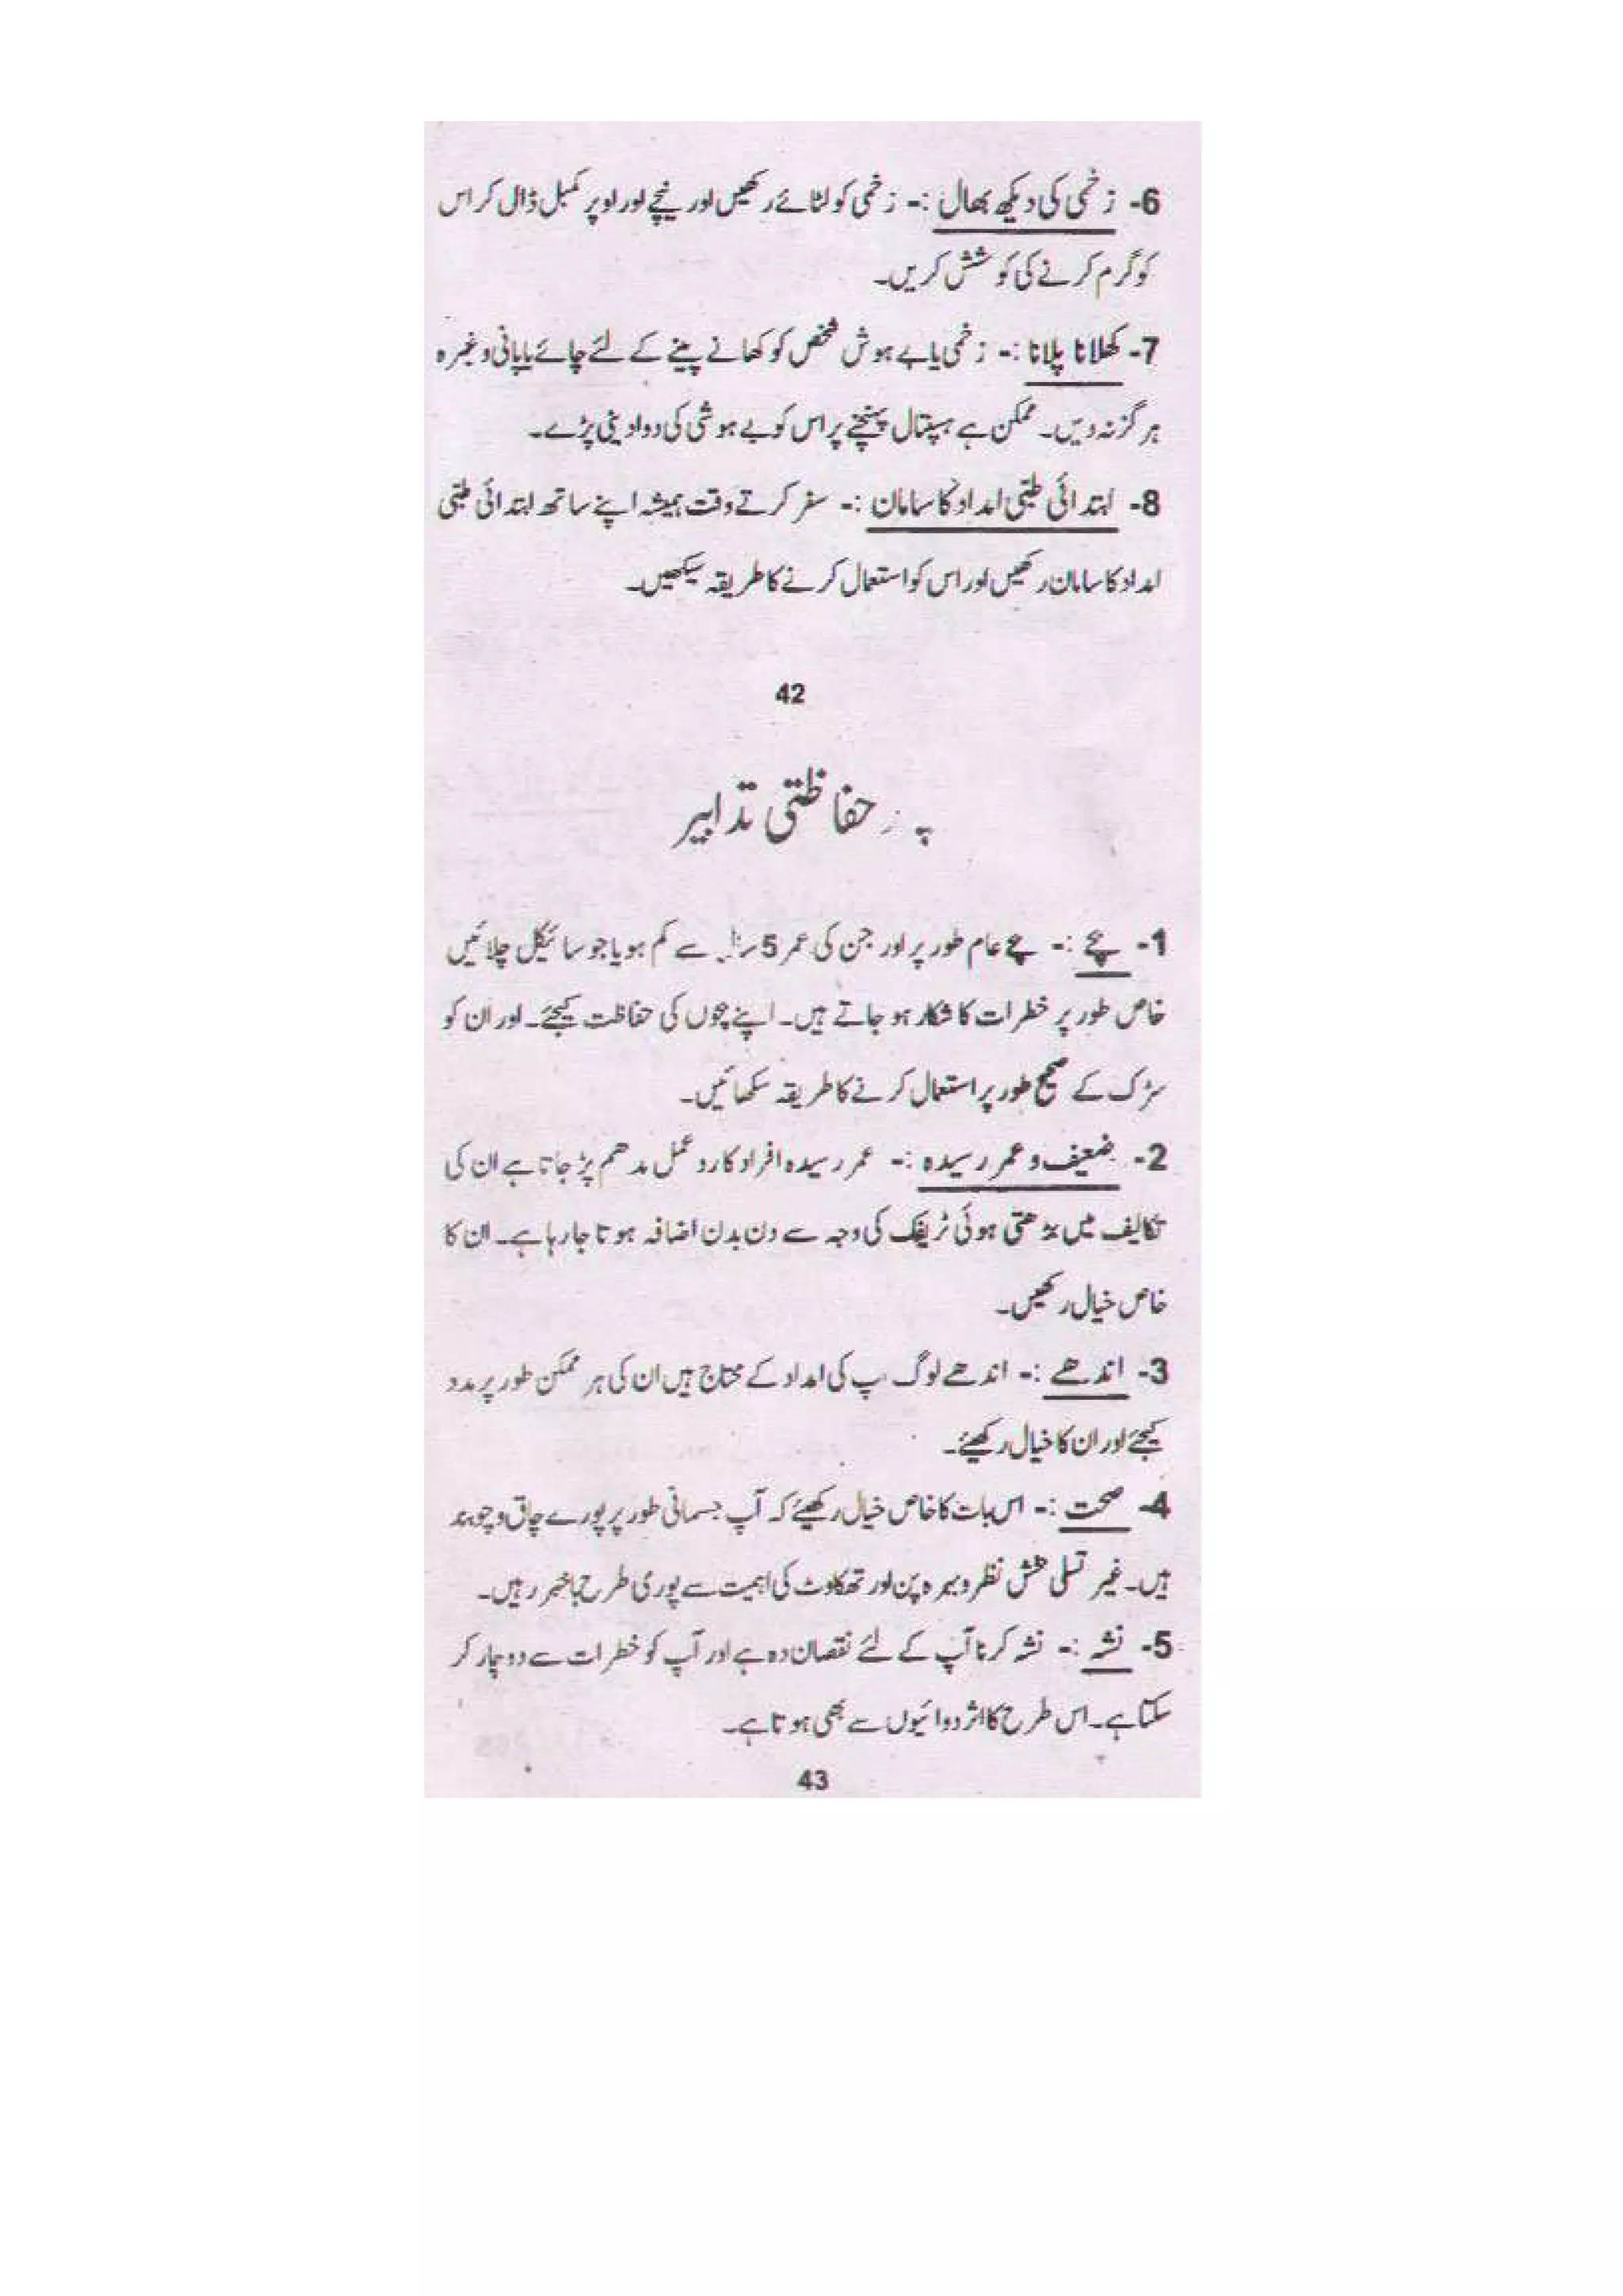 6- زخمی کی دیکھ بھال :- زخمی کو لٹائے رکھیں اور نیچے اور اوپر کمبل ڈال کر اس
کو گرم کرنے کی کوشش کریں۔
7- کھلانا پلانا :- زخمی یا بے ہوش شخص کو کھانے پینے کے لئے چائے یا پانی وغیرہ
ہرگز نہ دیں۔ ممکن ہے ہسپتال پہنچنے پر اس کو بے ہوشی کی دوا دینی پڑے۔
8- ابتدائی طبی امداد کا سامان :- سفر کرتے وقت ہمیشہ اپنے ساتھ ابتدائی طبی
امداد کا سامان رکھیں اور اس کو استعمال کرنے کا طریقہ سیکھیں۔
42
حفاظتی تدابیر
1- بچے :- بچے عام طور پر اور جن کی عمر 5 سال سے کم ہو یا جو سائیکل چلائیں
خاص طور پر خطرات کا شکار ہو جاتے ہیں۔ اپنے بچوں کی حفاظت کیجئے۔ اور ان کو
سڑک کے صحیح طور پر استعمال کرنے کا طریقہ سکھائیں۔
2- ضعیف و عمر رسیدہ :- عمر رسیدہ افراد کا رد عمل مدھم پڑ جاتا ہے ان کی
تکالیف میں بڑھتی ہوئی ٹریفک کی وجہ سے دن بدن اضافہ ہوتا جا رہا ہے۔ ان کا
خاص خیال رکھیں۔
3- اندھے :- اندھے لوگ آپ کی امداد کے محتاج ہیں ان کی ہر ممکن طور پر مدد
کیجئے اور ان کا خیال رکھیئے۔
4- صحت :- اس بات کا خاص خیال رکھیئے کہ آپ جسمانی طور پر پورے چاق و چوبند
ہیں۔ غیر تسلی بخش نظر و بہرہ پن اور تھکاوٹ کی اہمیت سے پوری طرح باخبر رہیں۔
5- نشہ :- نشہ کرنا آپ کے لئے نقصان دہ ہے اور آپ کو خطرات سے دوچار کر
سکتا ہے۔ اس طرح کا اثر دوائیوں سے بھی ہوتا ہے۔
43